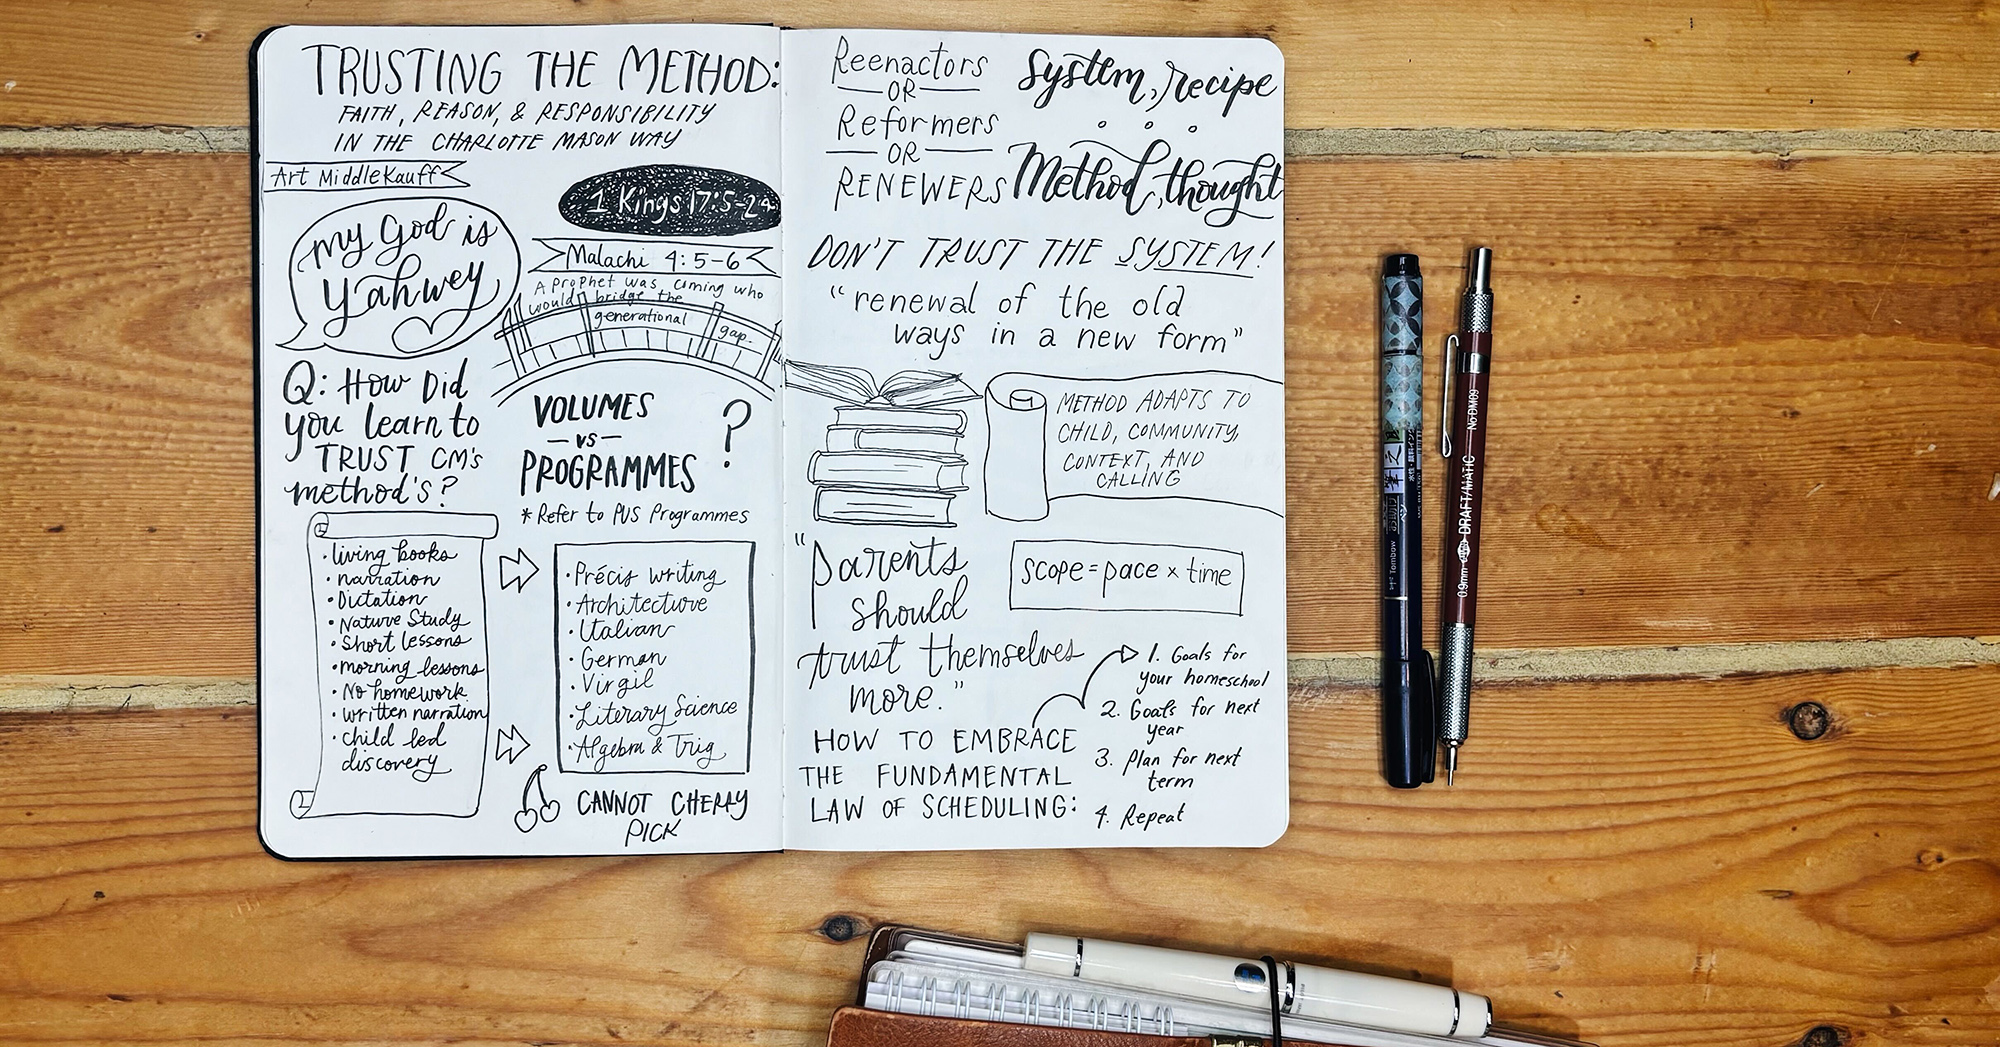 TRUSTING THE METHOD:
FAITH, REASON, & RESPONSIBILITY
IN THE CHARLOTTE MASON WAY
Art Middlekauff
1 Kings 17:5-24
my God is
Yahwey
Malachi 4:5-6
A Prophet was coming who
would bridge the
generational
gap.
Q: How Did
you learn to
TRUST CM's
method's?
VOLUMES
— VS —
PROGRAMMES
?
* Refer to PUS Programmes
• living books
• narration
• Dictation
• Nature Study
• Short lessons
• morning lessons
• No homework
• written narration
• child led
discovery
• Précis writing
• Architecture
• Italian
• German
• Virgil
• Literary Science
• Algebra & Trig
CANNOT CHERRY
PICK
Reenactors
— OR —
Reformers
— OR —
RENEWERS
System, recipe
Method, thought
DON'T TRUST THE SYSTEM!
"renewal of the old
ways in a new form"
METHOD ADAPTS TO
CHILD, COMMUNITY,
CONTEXT, AND
CALLING
"Parents
should
trust themselves
more."
scope = pace × time
HOW TO EMBRACE
THE FUNDAMENTAL
LAW OF SCHEDULING:
1. Goals for
your homeschool
2. Goals for next
year
3. Plan for next
term
4. Repeat
Tombow
0.9mm DRAFT/MATIC No DM09